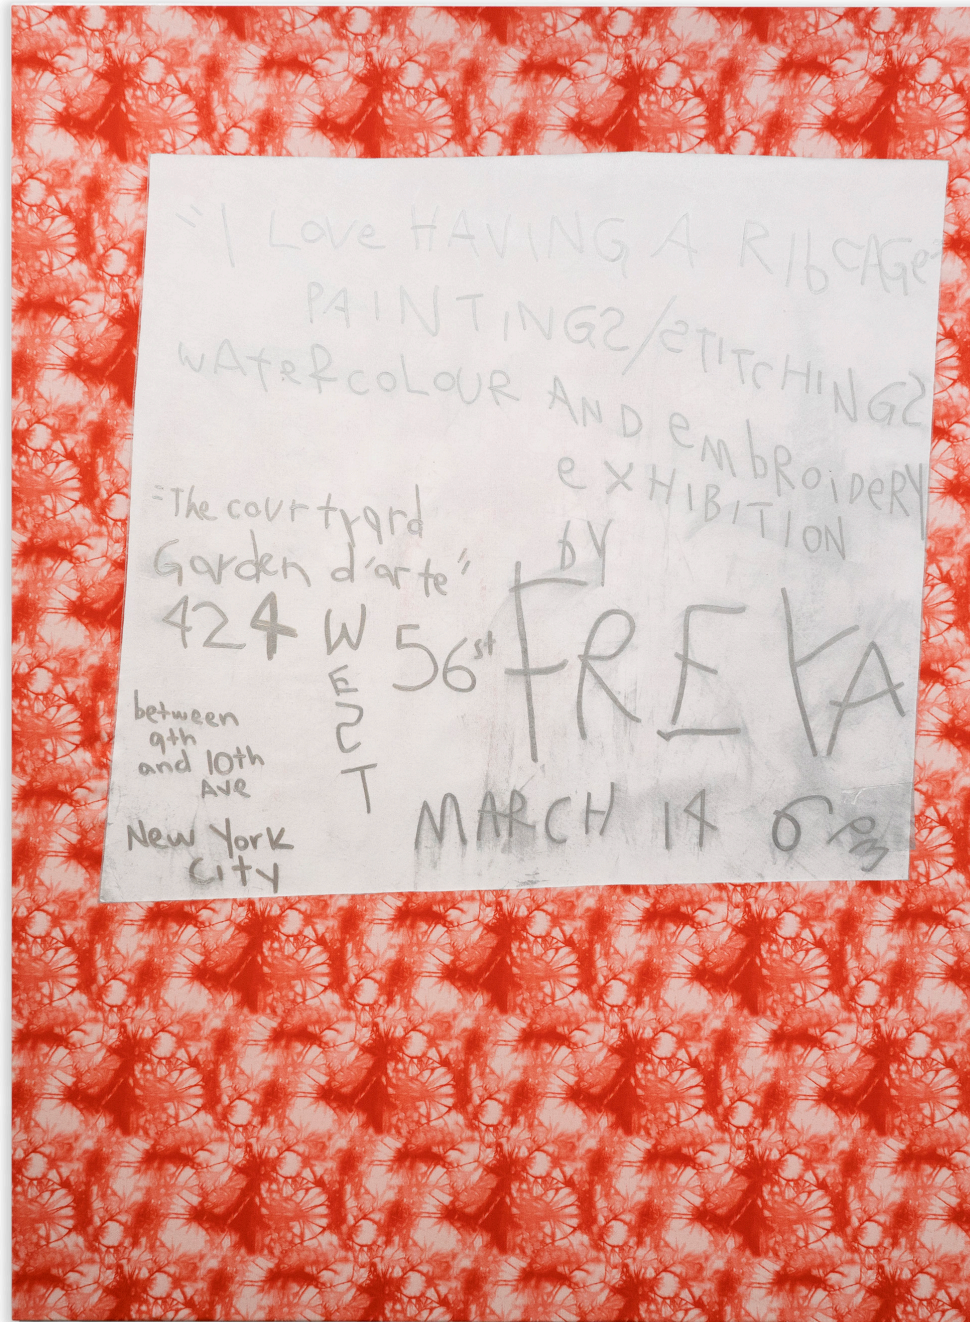 "I LOVE HAVING A RIbCAGe"
PAINTINGS/STITCHINGS
WATeRCOLOUR AND embROiDeRY
eXHIBITION
by
FREYA
"The courtyard
Garden d'arte"
424 WEST 56st
between
9th
and 10th
Ave
New York
City
MARCH 14 6